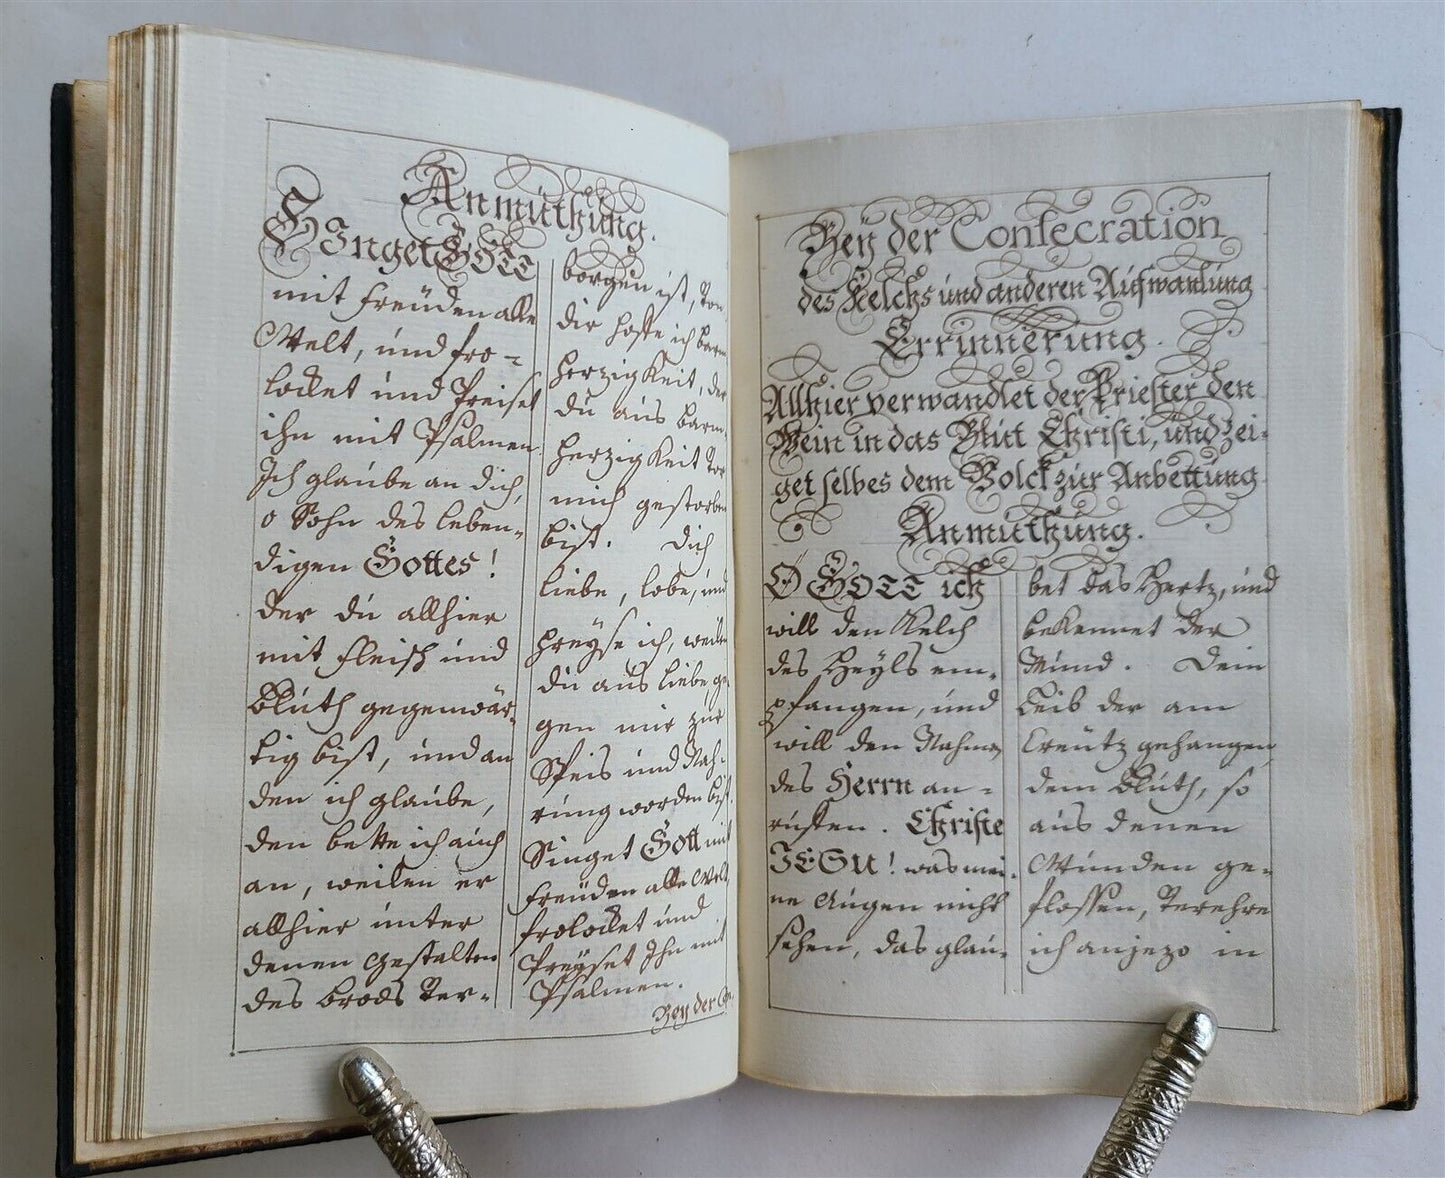 Anmüthung.
Singet GOTT
mit freüden alle
Welt, und fro-
locket und Preiset
ihn mit Psalmen
Ich glaube an dich,
o Sohn des leben-
digen Gottes!
der du allhier
mit fleisch und
Blüth gegenwär-
tig bist, und an
den ich glaube,
den bette ich auch
an, weilen er
allhier unter
denen Gestalten
des brods ver-
borgen ist, von
dir hoffe ich barm
herzigkeit, der
du aus barm-
herzigkeit vor
mich gestorben
bist. Dich
liebe, lobe, und
preyse ich, weilen
du aus liebe ge
gen mir zur
Speis und Nah-
rung worden bist.
Singet Gott mit
freüden alle Welt,
frolocket und
Preyset Ihn mit
Psalmen.
Bey der Con-
Bey der Consecration
des Kelchs und anderen Aufwantlung
Errinnerung.
Allhier verwandlet der Priester den
Wein in das Blut Christi, und zei-
get selbes dem Volck zur Anbettung
Anmüthung.
O GOTT ich
will den Kelch
des Heyls em-
pfangen, und
will den Nahmen
des Herrn an-
ruffen. Christe
JESU! was mei-
ne Augen nicht
sehen, das glau-
bet das Hertz, und
bekennet der
Mund. Dein
Leib der am
Creütz gehangen
dem Blüth, so
aus denen
Wunden ge-
flossen, verehre
ich anjezo in